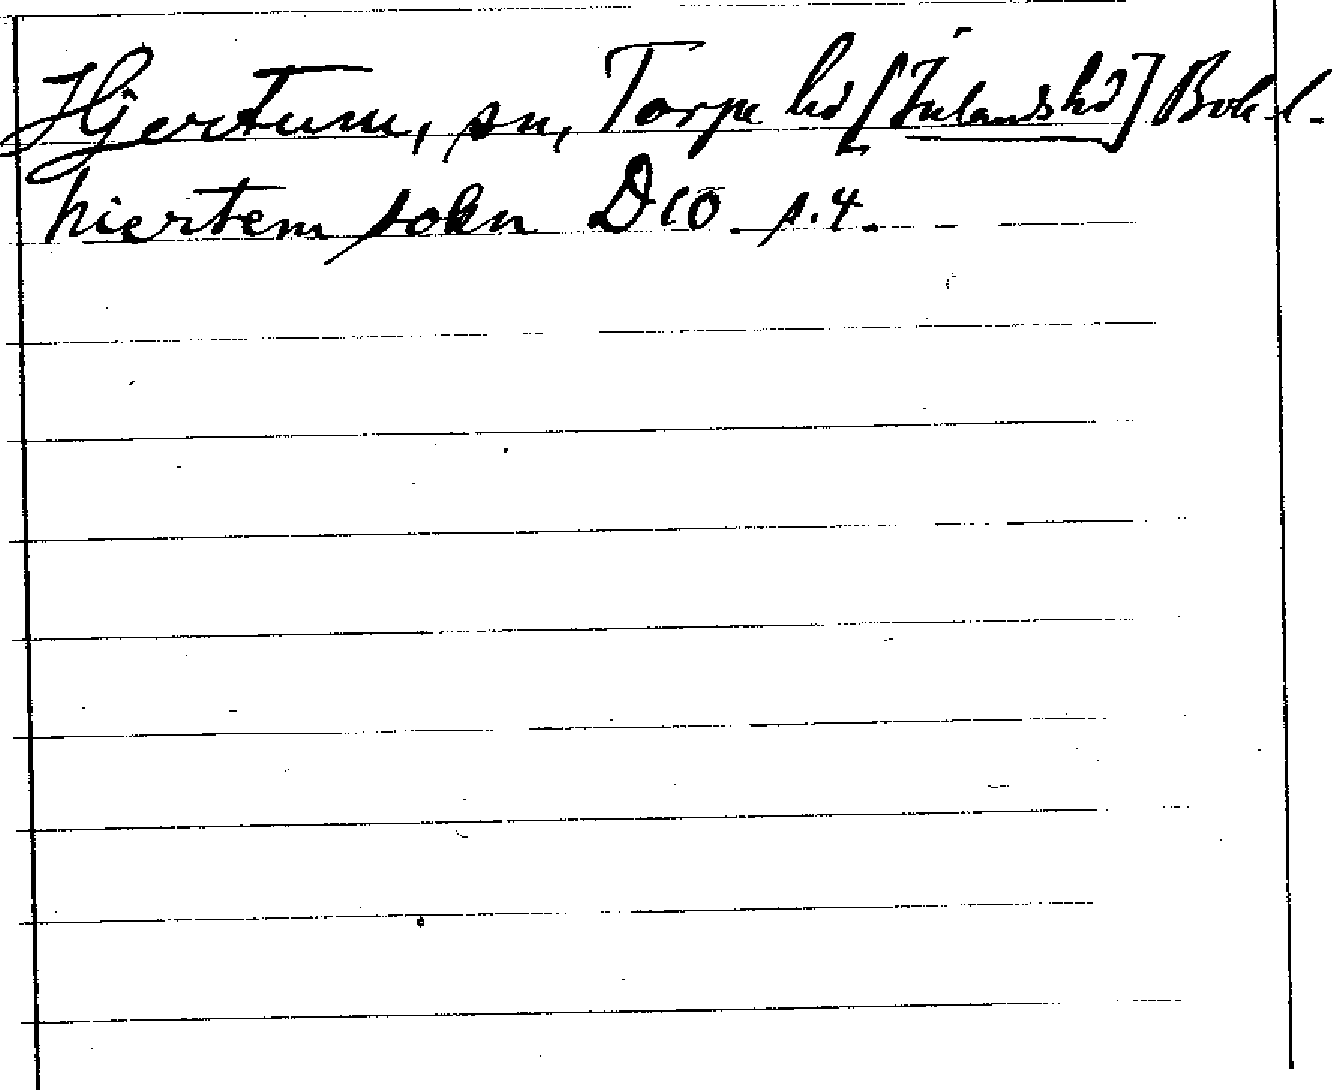 Hjertum, sn, Torpe hd [Inlands hd] Boh. l.
hiertem sokn DCO s. 4.